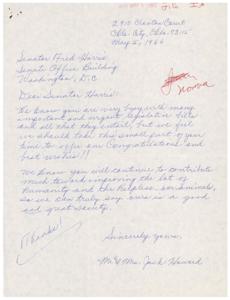 File
2910 Charter Court
Okla. City, Okla. 73115
May 5, 1966
Senator Fred Harris
Senate Office Building
Washington, D.C.
Dear Senator Harris:
We know you are very busy with many
important and urgent legislative bills
and all that they entail, but we feel
we should take this small part of your
time to offer our Congratulations and
best wishes!!
We know you will continue to contribute
much toward improving the lot of
Humanity and the Helpless animals,
so we can truly say ours is a good
and great society.
Thanks!
Sincerely yours,
Mr. & Mrs. Jack Howard